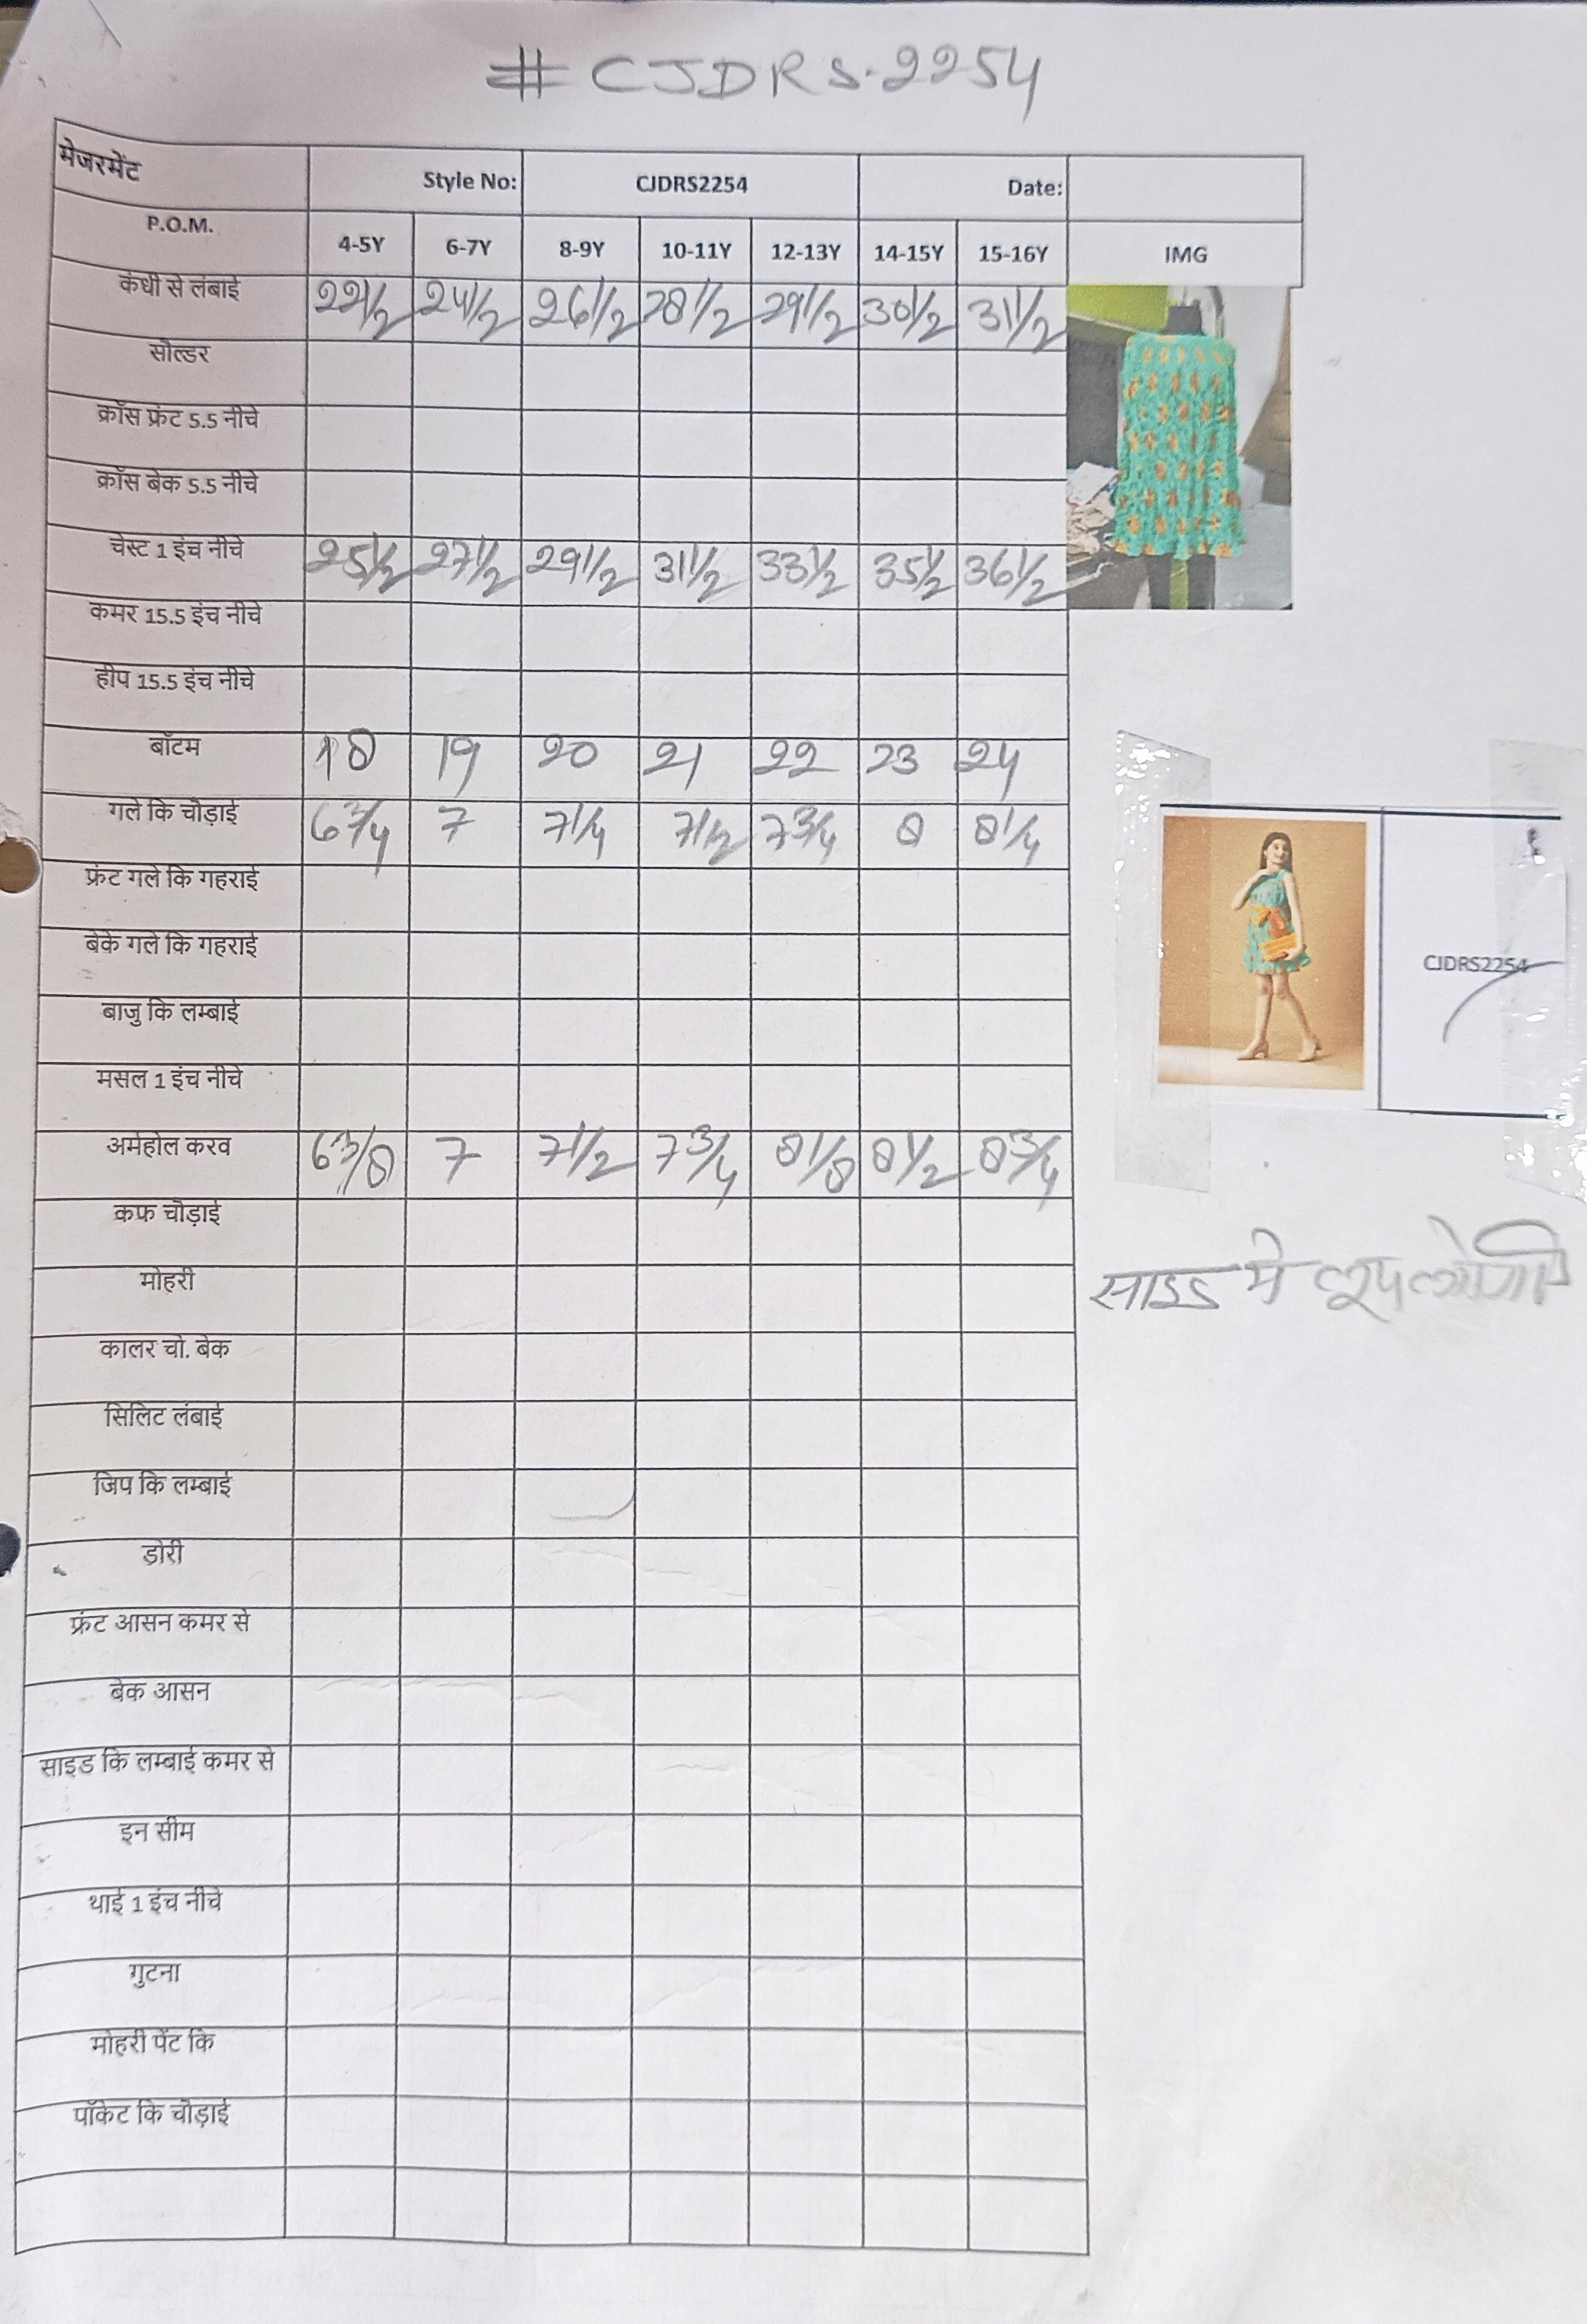 #CJDRS.2254
मेजरमेंट Style No: CJDRS2254 Date:
P.O.M. 4-5Y 6-7Y 8-9Y 10-11Y 12-13Y 14-15Y 15-16Y IMG
कंधी से लंबाई 22 1/2 24 1/2 26 1/2 28 1/2 29 1/2 30 1/2 31 1/2
सोल्डर
क्रॉस फ्रंट 5.5 नीचे
क्रॉस बेक 5.5 नीचे
चेस्ट 1 इंच नीचे 25 1/2 27 1/2 29 1/2 31 1/2 33 1/2 35 1/2 36 1/2
कमर 15.5 इंच नीचे
हीप 15.5 इंच नीचे
बॉटम 18 19 20 21 22 23 24
गले कि चोड़ाई 6 3/4 7 7 1/4 7 1/2 7 3/4 8 8 1/4
फ्रंट गले कि गहराई
बेके गले कि गहराई
CJDRS2254
बाजु कि लम्बाई
मसल 1 इंच नीचे
अर्महोल करव 6 3/8 7 7 1/2 7 3/4 8 1/8 8 1/2 8 3/4
कफ चोड़ाई
साइड मे
मोहरी
कालर चो. बेक
सिलिट लंबाई
जिप कि लम्बाई
डोरी
फ्रंट आसन कमर से
बेक आसन
साइड कि लम्बाई कमर से
इन सीम
थाई 1 इंच नीचे
गुटना
मोहरी पेंट कि
पॉकेट कि चोड़ाई